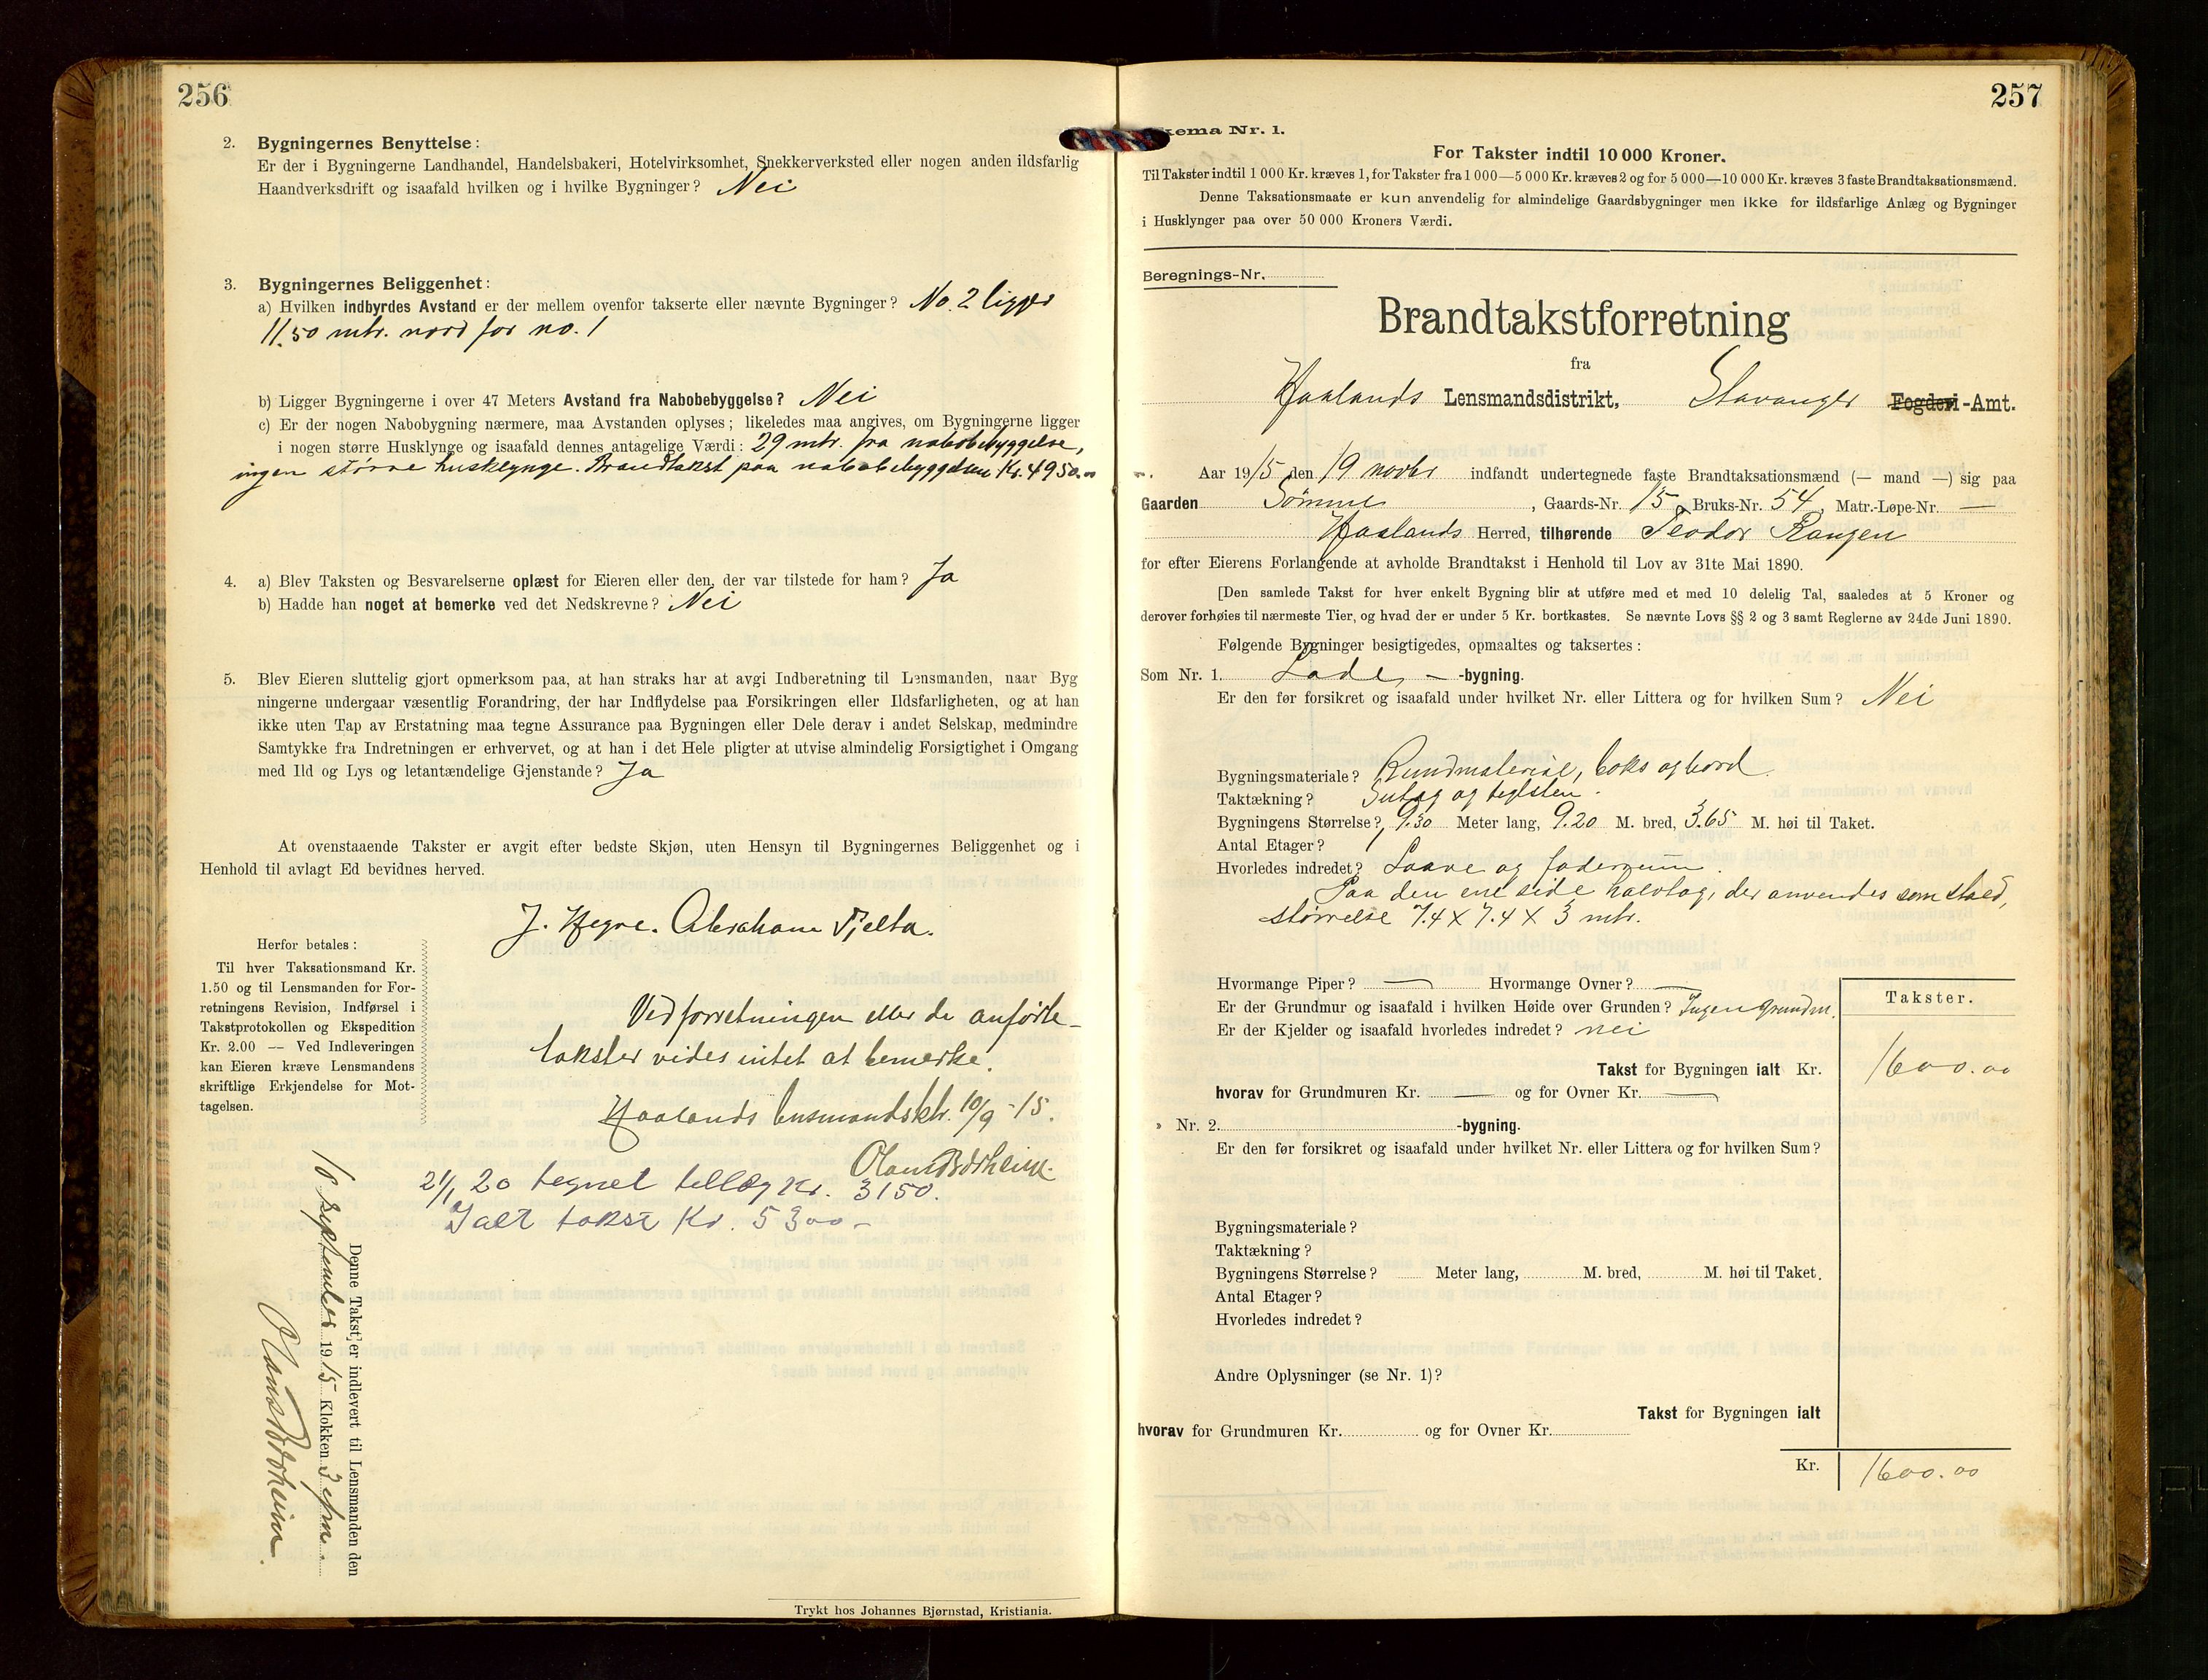 256
2. Bygningernes Benyttelse:
Er der i Bygningerne Landhandel, Handelsbakeri, Hotelvirksomhet, Snekkerverksted eller nogen anden ildsfarlig
Haandverksdrift og isaafald hvilken og i hvilke Bygninger? Nei
3. Bygningernes Beliggenhet:
a) Hvilken indbyrdes Avstand er der mellem ovenfor takserte eller nævnte Bygninger? No. 2 ligger
11.50 mtr. nord for no. 1
b) Ligger Bygningerne i over 47 Meters Avstand fra Nabobebyggelse? Nei
c) Er der nogen Nabobygning nærmere, maa Avstanden oplyses; likeledes maa angives, om Bygningerne ligger
i nogen større Husklynge og isaafald dennes antagelige Værdi: 29 mtr. fra nabobebyggelse,
ingen større husklynge. Brandtakst paa nabobebyggelsen Kr. 4950.00
4. a) Blev Taksten og Besvarelserne oplæst for Eieren eller den, der var tilstede for ham? Ja
b) Hadde han noget at bemerke ved det Nedskrevne? Nei
5. Blev Eieren sluttelig gjort opmerksom paa, at han straks har at avgi Indberetning til Lensmanden, naar Byg
ningerne undergaar væsentlig Forandring, der har Indflydelse paa Forsikringen eller Ildsfarligheten, og at han
ikke uten Tap av Erstatning maa tegne Assurance paa Bygningen eller Dele derav i andet Selskap, medmindre
Samtykke fra Indretningen er erhvervet, og at han i det Hele pligter at utvise almindelig Forsigtighet i Omgang
med Ild og Lys og letantændelige Gjenstande? Ja
At ovenstaaende Takster er avgit efter bedste Skjøn, uten Hensyn til Bygningernes Beliggenhet og i
Henhold til avlagt Ed bevidnes herved.
J. Hegre. Abraham Tjelta.
Herfor betales:
Til hver Taksationsmand Kr.
1.50 og til Lensmanden for For-
retningens Revision, Indførsel i
Takstprotokollen og Ekspedition
Kr. 2.00 — Ved Indleveringen
kan Eieren kræve Lensmandens
skriftlige Erkjendelse for Mot-
tagelsen.
Ved forretningen eller de anførte
takster vides intet at bemerke.
Haalands lensmandsktr. 10/9 - 15.
21/1 20 tegnet tillæg Kr. 3150.
Ialt takst Kr. 5300 -
Denne Takst er indlevert til Lensmanden den
10 september 1915 Klokken 3 efm.
Trykt hos Johannes Bjørnstad, Kristiania.
257
kema Nr. 1.
For Takster indtil 10 000 Kroner.
Til Takster indtil 1 000 Kr. kræves 1, for Takster fra 1 000—5 000 Kr. kræves 2 og for 5 000—10 000 Kr. kræves 3 faste Brandtaksationsmænd.
Denne Taksationsmaate er kun anvendelig for almindelige Gaardsbygninger men ikke for ildsfarlige Anlæg og Bygninger
i Husklynger paa over 50 000 Kroners Værdi.
Beregnings-Nr.
Brandtakstforretning
fra
Haalands Lensmandsdistrikt, Stavanger Fogderi-Amt.
Aar 1915 den 19 novbr indfandt undertegnede faste Brandtaksationsmænd (— mand —) sig paa
Gaarden Sømme, Gaards-Nr. 15, Bruks-Nr. 54, Matr.-Løpe-Nr. —
Haalands Herred, tilhørende Teodor Rangen
for efter Eierens Forlangende at avholde Brandtakst i Henhold til Lov av 31te Mai 1890.
[Den samlede Takst for hver enkelt Bygning blir at utføre med et med 10 delelig Tal, saaledes at 5 Kroner og
derover forhøies til nærmeste Tier, og hvad der er under 5 Kr. bortkastes. Se nævnte Lovs §§ 2 og 3 samt Reglerne av 24de Juni 1890.
Følgende Bygninger besigtigedes, opmaaltes og taksertes:
Som Nr. 1. Lade — -bygning.
Er den før forsikret og isaafald under hvilket Nr. eller Littera og for hvilken Sum? Nei
Bygningsmateriale? Rundmateriale, boks og bord.
Taktækning? Sutag og teglsten.
Bygningens Størrelse? 9.30 Meter lang, 9.20 M. bred, 3.65 M. høi til Taket.
Antal Etager? 1
Hvorledes indredet? Laave og foderrum.
Paa den ene side halvtag, der anvendes som stald,
størrelse 7.4 X 7.4 X 3 mtr.
Hvormange Piper? — Hvormange Ovner? —
Er der Grundmur og isaafald i hvilken Høide over Grunden? Ingen grundm.
Er der Kjelder og isaafald hvorledes indredet? nei
Takster.
Takst for Bygningen ialt Kr. 1600.00
hvorav for Grundmuren Kr. — og for Ovner Kr. —
» Nr. 2. -bygning.
Er den før forsikret og isaafald under hvilket Nr. eller Littera og for hvilken Sum?
Bygningsmateriale?
Taktækning?
Bygningens Størrelse? Meter lang, M. bred, M. høi til Taket.
Antal Etager?
Hvorledes indredet?
Andre Oplysninger (se Nr. 1)?
Takst for Bygningen ialt
hvorav for Grundmuren Kr. og for Ovner Kr.
Kr. 1600.00